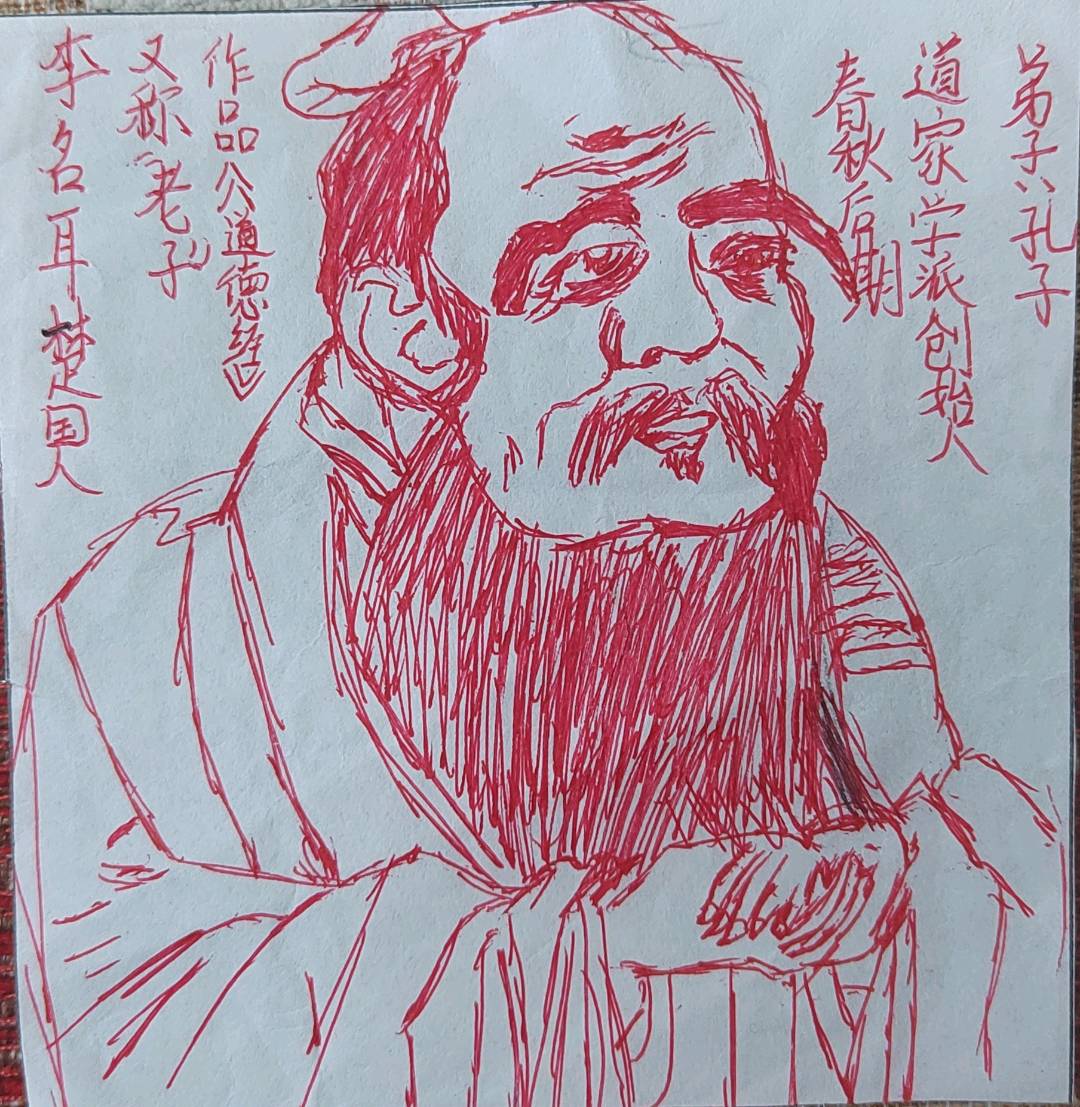 李名耳 楚国人
又称“老子”
作品《道德经》
春秋后期
道家学派创始人
弟子：孔子